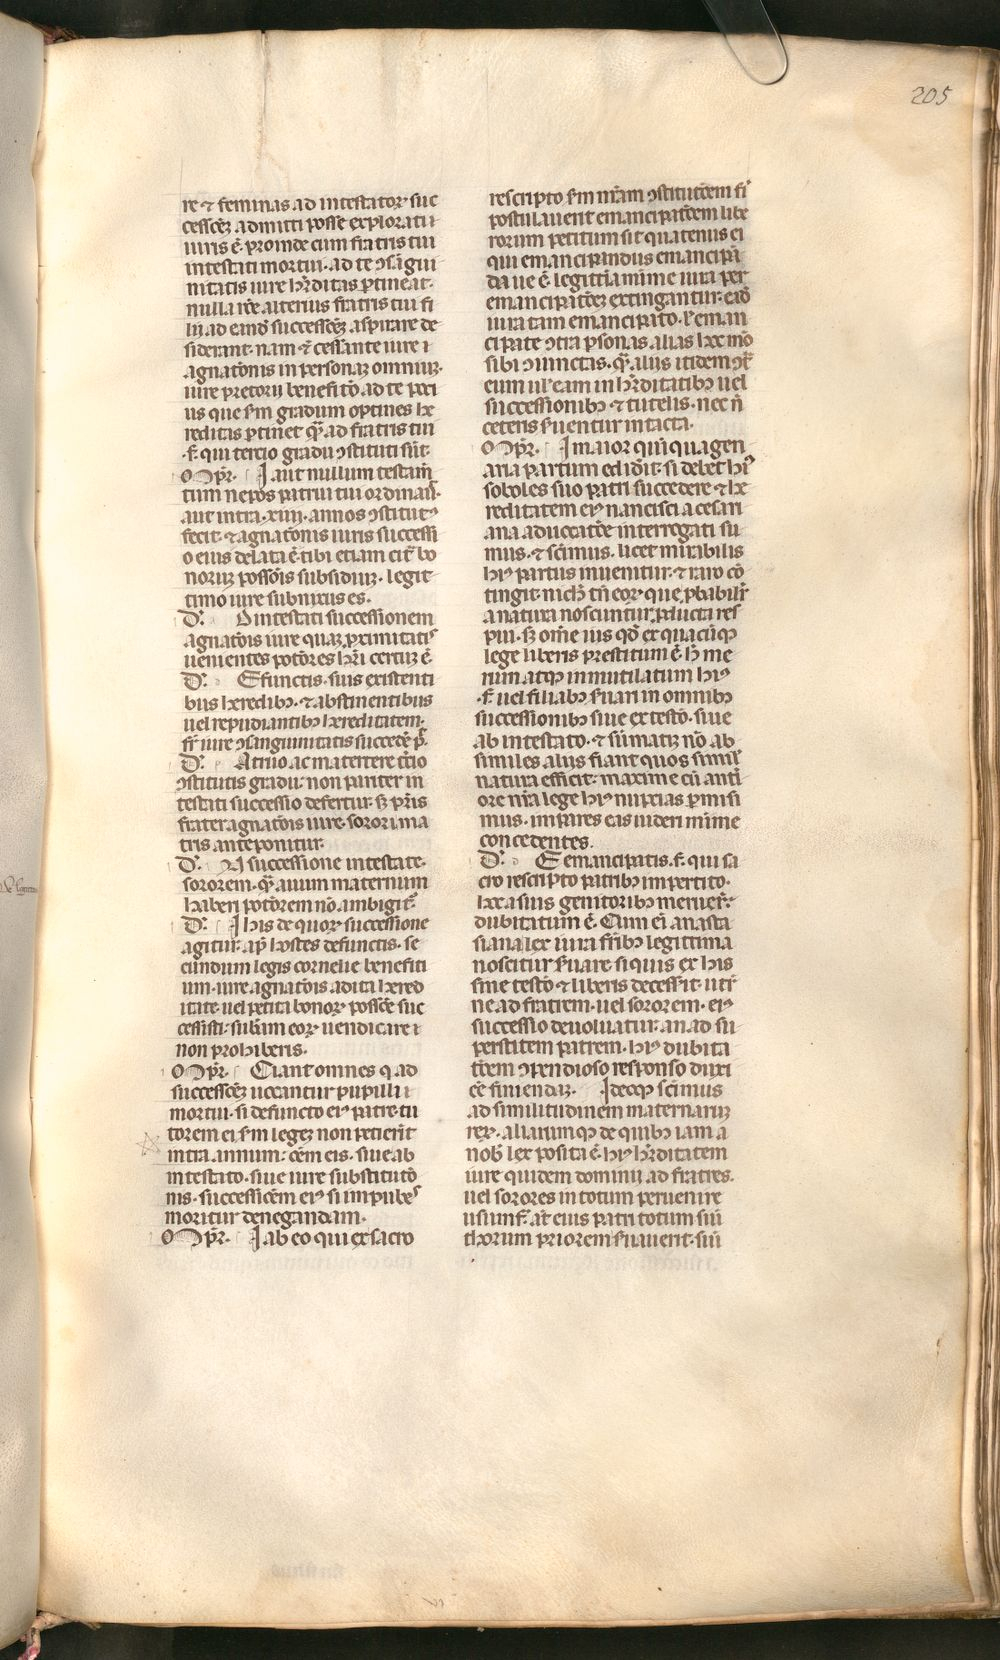 205
re ⁊ feminas ad intestatoꝝ suc
cessiōeꝫ admitti posse explorati
iuris ē. proinde cum fratris tui
intestati mortui. ad te ↄsāgui
nitatis iure h̄editas ꝑtineat.
nulla rōe alterius fratris tui fi
lii ad eand̄ successiōeꝫ aspirare de
siderant. nam ⁊ cessante iure i
agnatōnis in personaꝝ omniuꝫ.
iure pretorii benefitō ad te poci
us que sm̄ gradum optines he
reditas ꝑtinet qͣꝫ ad fratris tui
.f. qui tercio gradu ↄstituti sūt.
Impr̄. I aut nullum testam̄
tum nepōs patrui tui ordinass.
aut intra .xiiii. annos ↄstitutꝰ
fecit. ⁊ agnatōnis iuris successi
o eius delata ē. tibi etiam cit̄ bo
noruꝫ possōis subsidiuꝫ. legit
timo iure subnixus es.
Id'. Ad intestati successionem
agnatōis iure quaꝫ ꝓximitatis
uenientes potōres h̄ri certuꝫ ē.
Id'. Efunctis. suis existenti
bus heredibꝫ. ⁊ abstinentibus
uel repudiantibꝫ hereditatem.
fr̄ iure ↄsanguinitatis succedē p̄t.
Id'. Atruo ac matertere tercio
ↄstitutis gradu. non pariter in
testati successio defertur. sꝫ pr̄is
frater agnatōis iure. sorori ma
tris anteponitur.
Id'. N successione intestate.
sororem. qͣꝫ auum maternum
haberi potōrem nō ambigit̄.
Id'. I his de quoꝝ successione
agitur. ap̄ hostes defunctis. se
cundum legis cornelie benefiti
um. iure agnatōis adita hered
itate. uel petita bonoꝝ possōe suc
cessisti. subām eoꝝ uendicare i
non prohiberis.
Impr̄. Ciant omnes q ad
successōeꝫ uocantur pupilli i
mortui. si defuncto eiꝰ patre. tu
torem ei sm̄ legeꝫ non petierit
intra annum. oēm eis. siue ab
intestato. siue iure substitutō
nis. successiōem eiꝰ si impubes
moritur denegandam.
Impr̄. I ab eo qui ex sacro
rescripto sm̄ nr̄am ↄstitutōem fi
postulauerit emancipatōem libe
rorum petitum sit quatenus ei
qui emancipandus emancipā
da ue ē. legittīa mīime iura per
emancipatōeꝫ extingantur. ead̄
iura tam emancipato. ł eman
cipate ↄtra ꝑsonas alias hoc mō
sibi ↄiunctas. qͣꝫ aliis itidem ↄt̄
eum ul' eam in h̄editatibꝫ uel
successionibꝫ ⁊ tutelis. nec n̄
ceteris s̄uentur intacta.
Impr̄. I maior qui̅quagen
aria partum edid̄it. si debet hiꝰ
soboles suo patri succedere ⁊ he
reditatem eiꝰ nancisci a cesari
ana aduocatōe interrogati su
mus. ⁊ sc̄imus. licet mirabilis
hiꝰ partus inuenitur. ⁊ raro cō
tingit. nich̄ tn̄ eoꝝ que ꝓbabilr̄
a natura noscuntur ꝓducta res
pui. sꝫ om̄e ius qd̄ ex quacūqꝫ
lege liberis prestitum ē. h̄ me
rum atqꝫ inmutilatum hiꝰ
.f. uel filiabꝫ s̄uari in omnibꝫ
successionibꝫ siue ex testō. siue
ab intestato. ⁊ sūmatiꝫ nō ab
similes aliis fiant quos similr̄
natura efficit. maxime cū anti
ore nr̄a lege hiꝰ nupcias ꝑmisi
mus. impares eas uideri mīime
concedentes.
Id'. E emancipatis .f. qui sa
cro rescripto patribꝫ impertito.
hec a suis genitoribꝫ meruer̄t.
dubitatum ē. Cum ei̅ anasta
siana lex iura fr̄ibꝫ legittima
noscitur s̄uare. si quis ex his
sine testō ⁊ liberis decess̄it. utr̄
ne ad fratrem. uel sororem. eiꝰ
successio deuoluatur. an ad su
perstitem patrem. hiꝰ dubita
tōem ↄpendioso responso duxi
ēe finiendaꝫ. Ideoqꝫ sc̄imus
ad similitudinem maternaruꝫ
reꝝ. aliarumqꝫ de quibꝫ iam a
nob̄ lex posita ē. hiꝰ h̄editatem
iure quidem dominii ad fratres.
uel sorores in totum peruenire
usumf̄. at̄ eius patri totum sui
thorum priorem s̄uauerit. sui